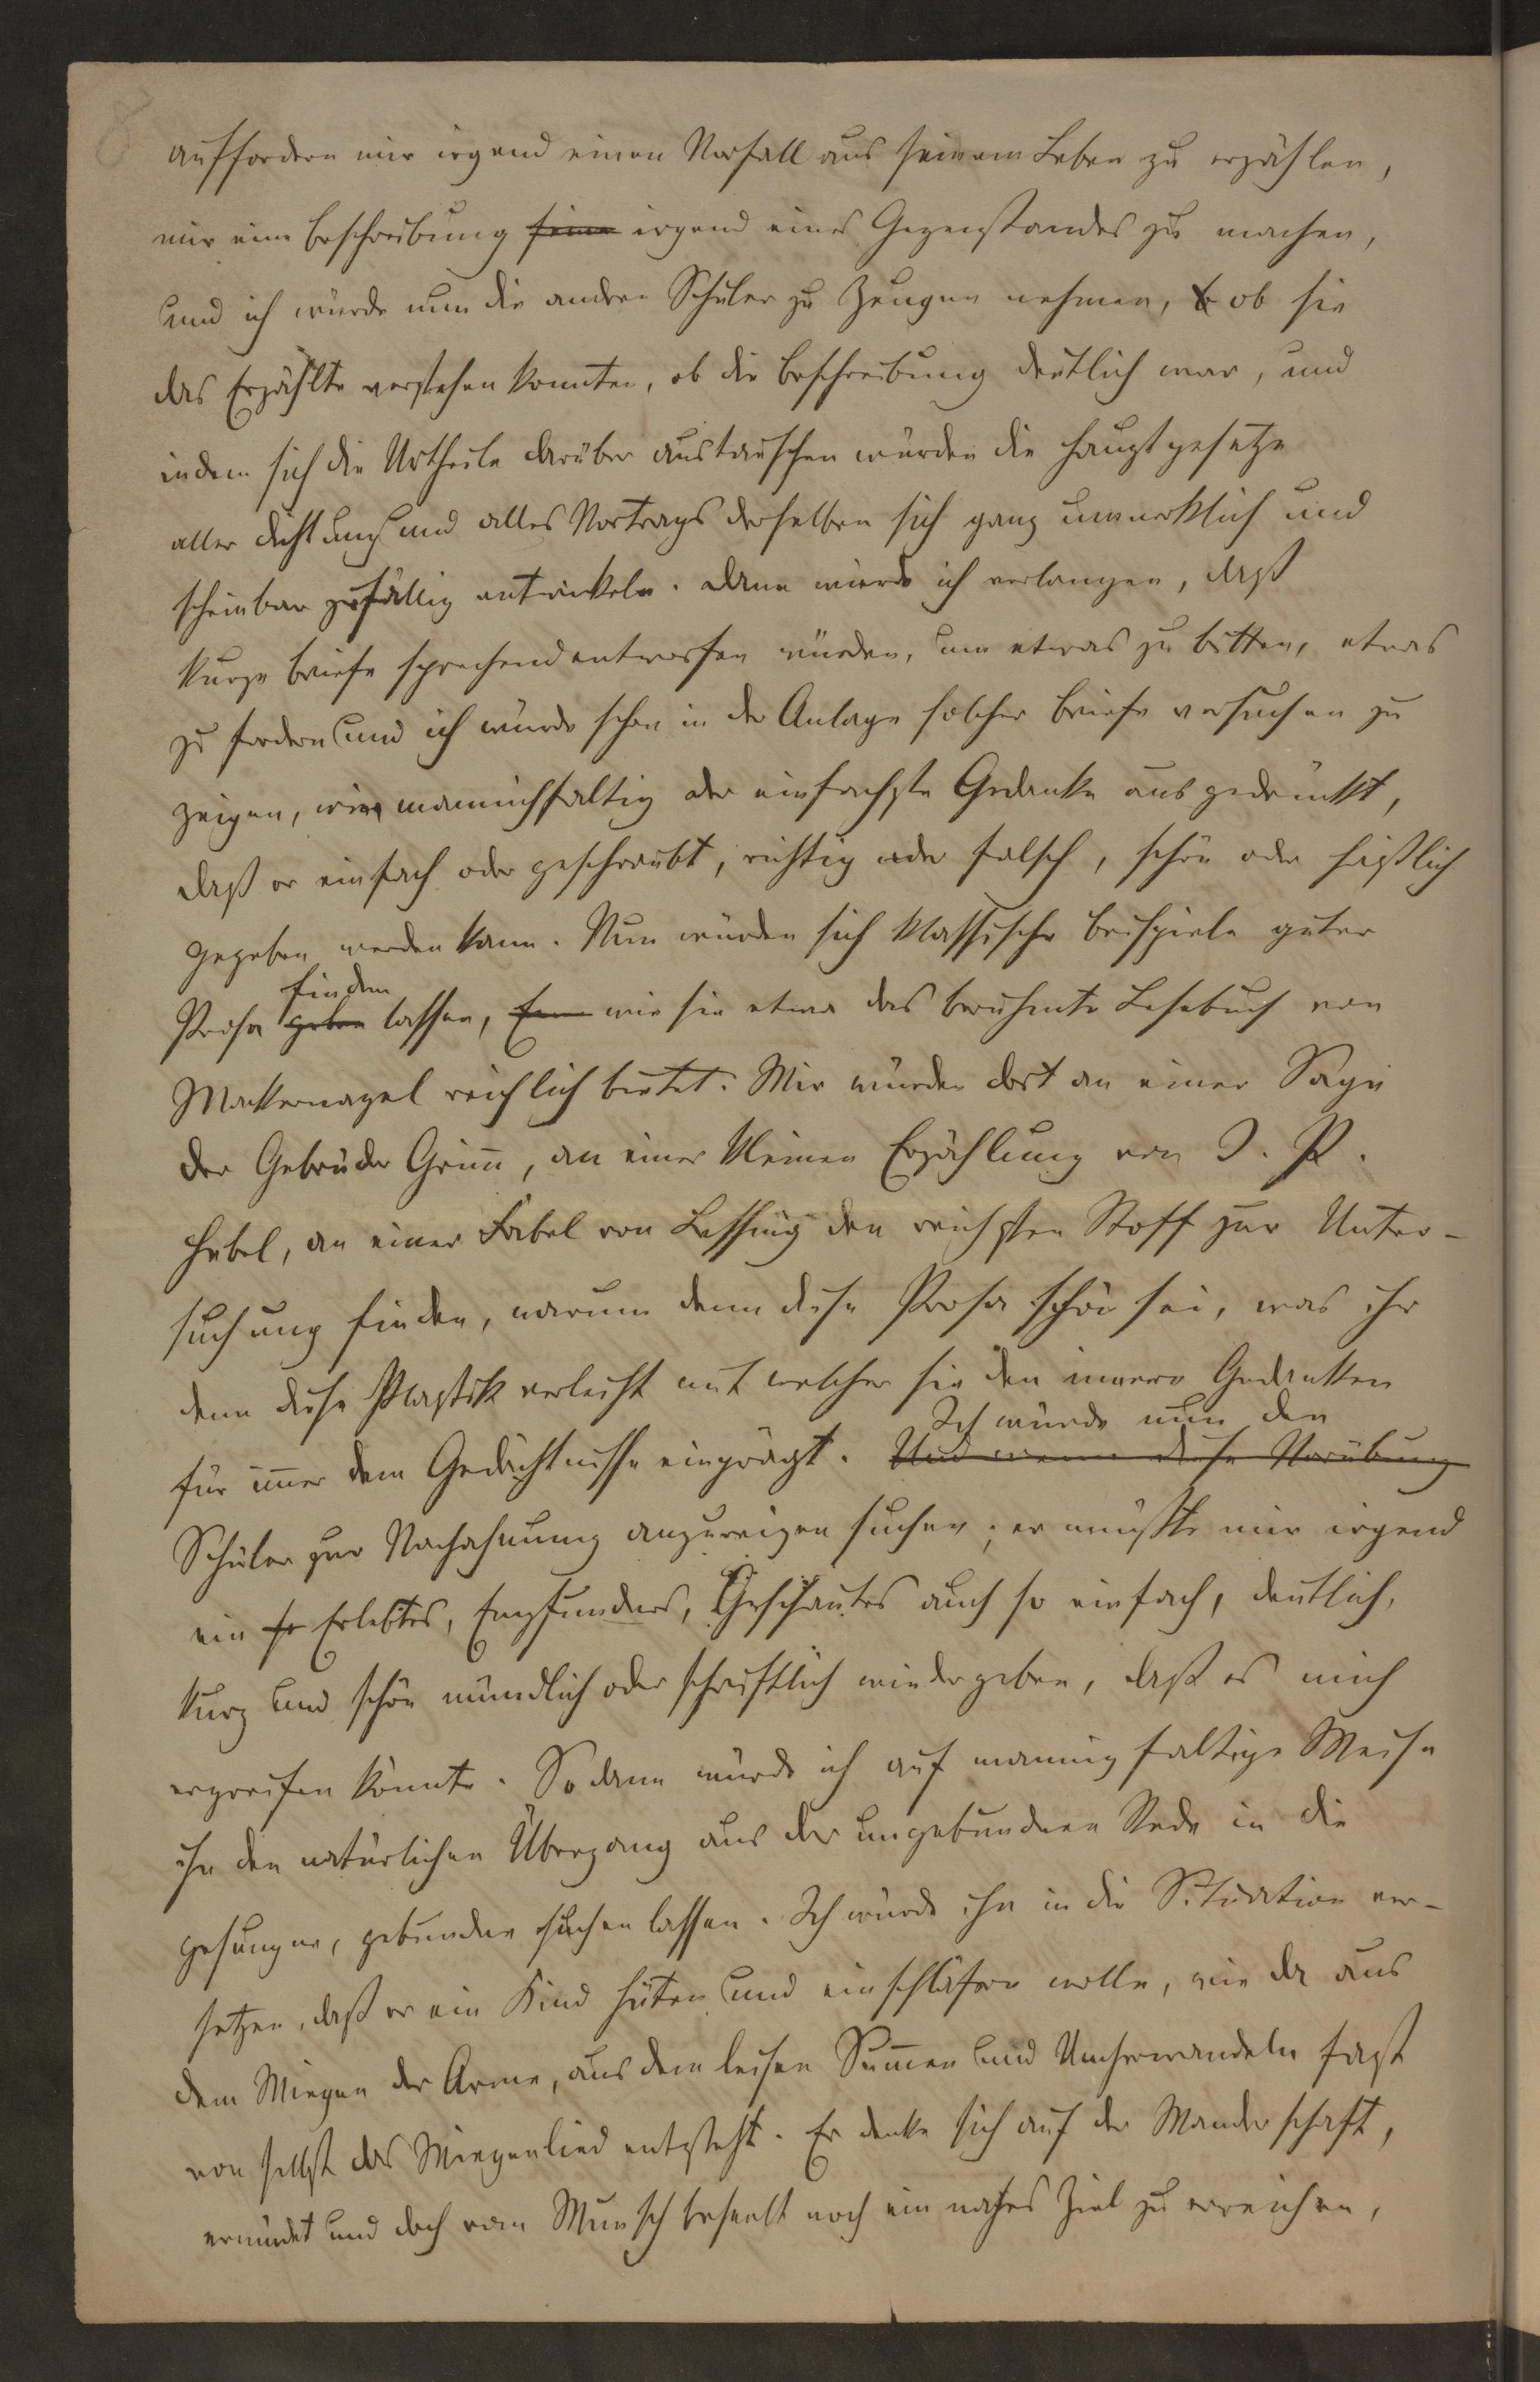 8
auffordern mir irgend einen Vorfall aus seinem Leben zu erzählen,
mir eine Beschreibung seine irgend eines Gegenstandes zu machen,
und ich würde nun die andren Schüler zu Zeugen nehmen, ob sie
das Erzählte verstehen konnten, ob die Beschreibung deutlich war, und
indem sich die Urtheile darüber austauschen würden die Hauptgesetze
aller Dichtung und alles Vortrags derselben sich ganz unmerklich und
scheinbar zufällig entwickeln. Dann würde ich verlangen, daß
kurze Briefe sprechend entworfen würden, um etwas zu bitten, etwas
zu fordern und ich würde schon in der Anlage solcher Briefe versuchen zu
zeigen, wie mannichfaltig der einfachste Gedanke ausgedrückt,
daß er einfach oder geschraubt, richtig oder falsch, schön oder häßlich
gegeben werden kann. Nun würden sich klassische Beispiele guter
finden
Prosa geben lassen, wie sie etwa das berühmte Lesebuch von
Wackernagel reichlich bietet. Wir würden dort an einer Sage
der Gebrüder Grim̅, an einer kleinen Erzählung von J. P.
Hebel, an einer Fabel von Lessing den reichsten Stoff zur Unter-
suchung finden, warum denn diese Prosa schön sei, was ihr
denn diese Plastik verleiht mit welcher sie den innern Gedanken
Ich würde nun den
für im̅er dem Gedächtnisse einprägt. Und wenn diese Vorübung
Schüler zur Nachahmung anzureizen suchen; er müßte mir irgend
ein Erlebtes, Empfundnes, Geschautes auch so einfach, deutlich,
kurz und schön mündlich oder schriftlich wiedergeben, daß es mich
ergreifen könnte. Sodann würde ich auf mannigfaltige Weise
ihn den natürlichen Übergang aus der ungebundnen Rede in die
gesungne, gebundne suchen lassen. Ich würde ihn in die Situation ver-
setzen, daß er ein Kind hüten und einschläfern wolle, wie da aus
dem Wiegen der Arme, aus dem leisen Sum̅en und Umherwandeln fast
von selbst das Wiegenlied entsteht. Er denke sich auf der Wanderschaft,
ermüdet und doch vom Wunsch beseelt noch ein nahes Ziel zu erreichen,